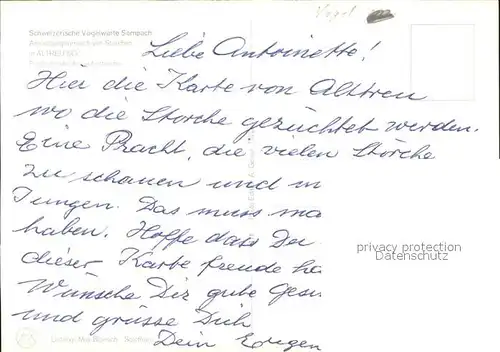 Vogel
Schweizerische Vogelwarte Sempach
Ansiedlungsversuch von Störchen
in ALTREU/SO
Liebe Antoinette!
Hier die Karte von Alttreu
wo die Störche gezüchtet werden.
Eine Pracht, die vielen Störche
zu schauen und
Jungen. Das muss ma
haben. Hoffe dass Du
dieser Karte freude ha
Wünsche Dir gute Gesu
und grüsse Dich
Dein Eugen
privacy protection
Datenschutz